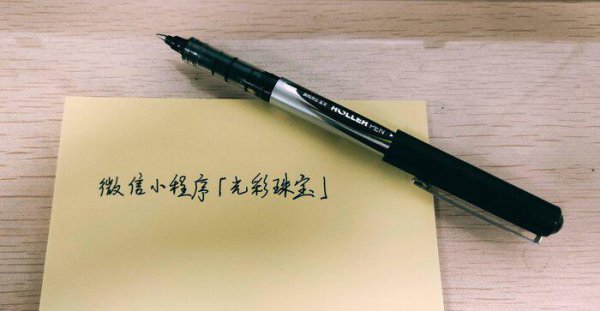 ROLLER PEN
微信小程序「光彩珠宝」